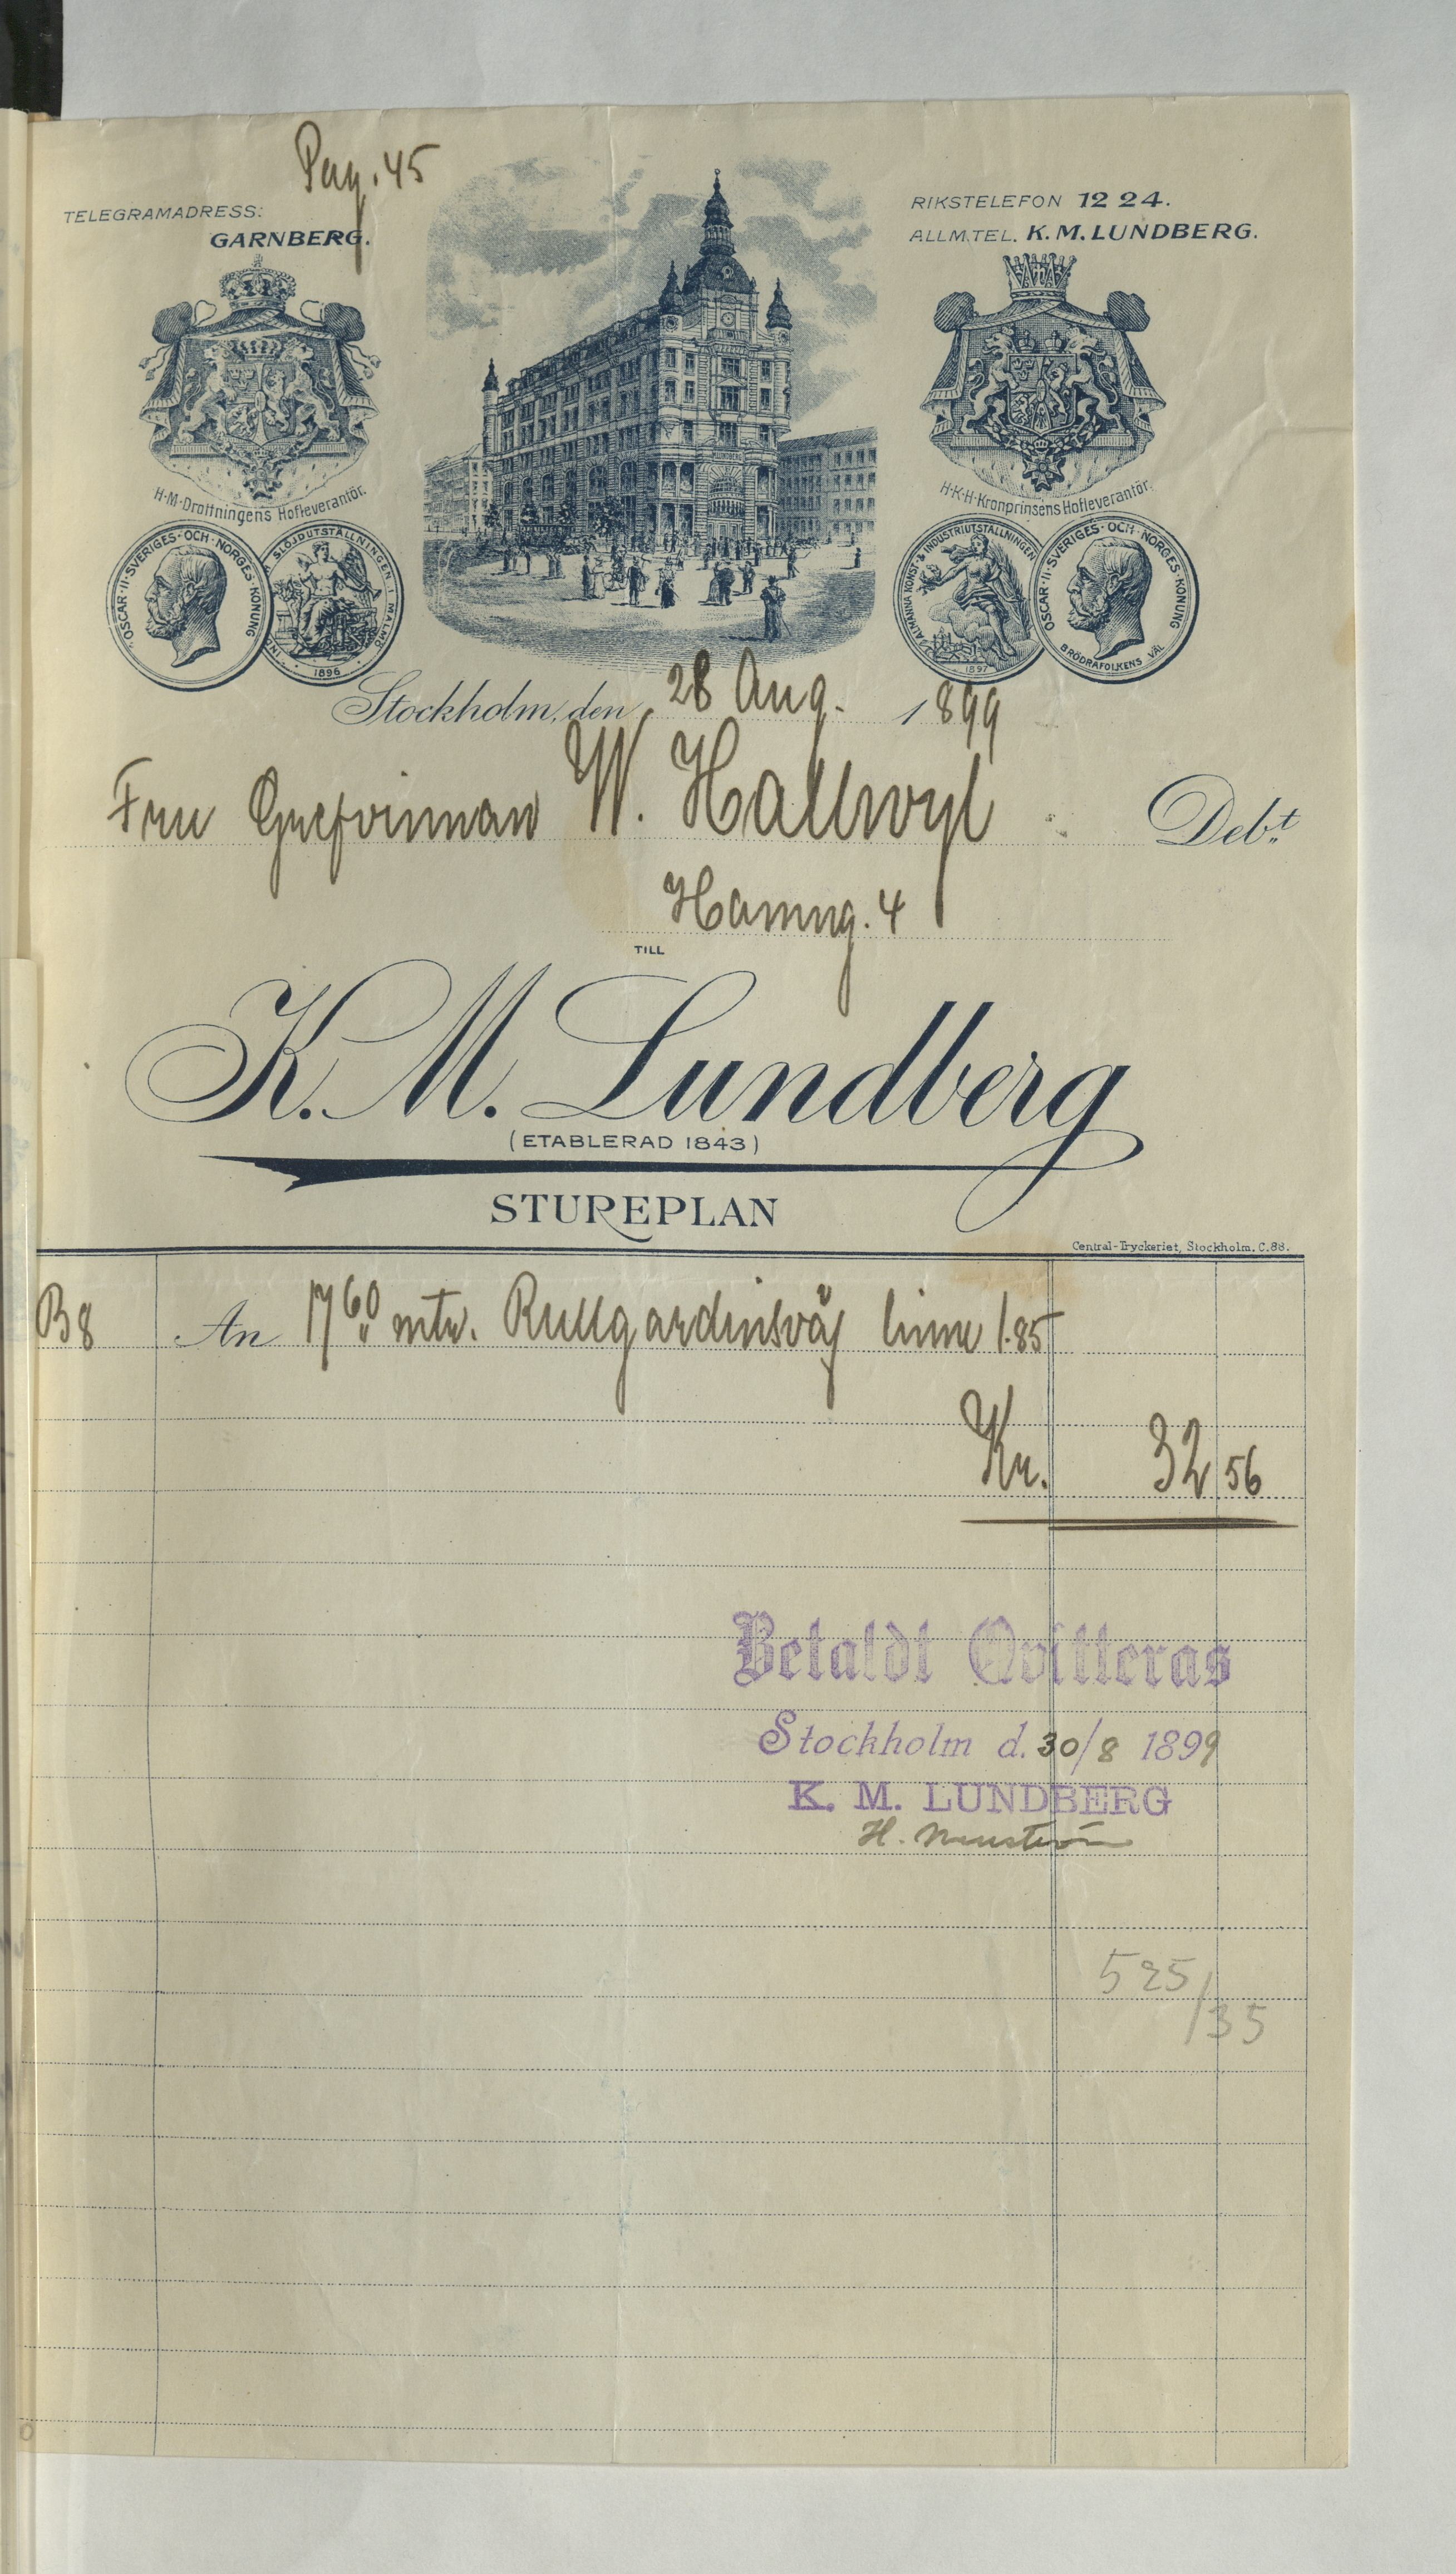 Pag. 45
TELEGRAMADRESS:
GARNBERG.
RIKSTELEFON 12 24.
ALLM. TEL. K. M. LUNDBERG.
H·M·Drottningens Hofleverantör.
H·K·H·Kronprinsens Hofleverantör.
OSCAR·II·SVERIGES·OCH·NORGES·KONUNG
SLÖJDUTSTÄLLNINGEN I MALMÖ
1896
ALLMÄNNA KONST-& INDUSTRIUTSTÄLLNINGEN
1897
OSCAR·II·SVERIGES·OCH·NORGES·KONUNG
BRÖDRAFOLKENS VÄL
Stockholm, den 28 Aug. 1899
Fru Grefvinnan W. Hallwyl Debt
Hamng. 4
TILL
K. M. Lundberg
(ETABLERAD 1843)
STUREPLAN
Central-Tryckeriet, Stockholm. C. 88.
B8 An 17 60 mtr. Rullgardinsväf linne 1.85
Kr. 32 56
Betaldt Qvitteras
Stockholm d. 30/8 1899
K. M. LUNDBERG
H.
525/35